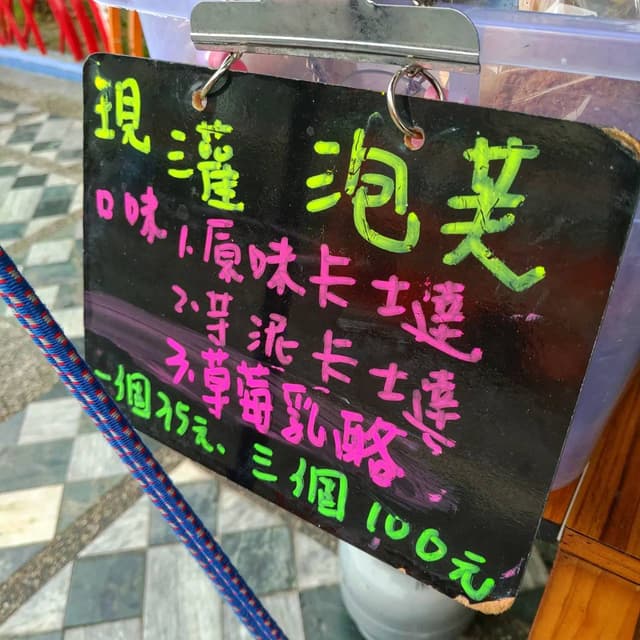 現灌泡芙
口味1.原味卡士達
2.芋泥卡士達
3.草莓乳酪
一個35元、三個100元